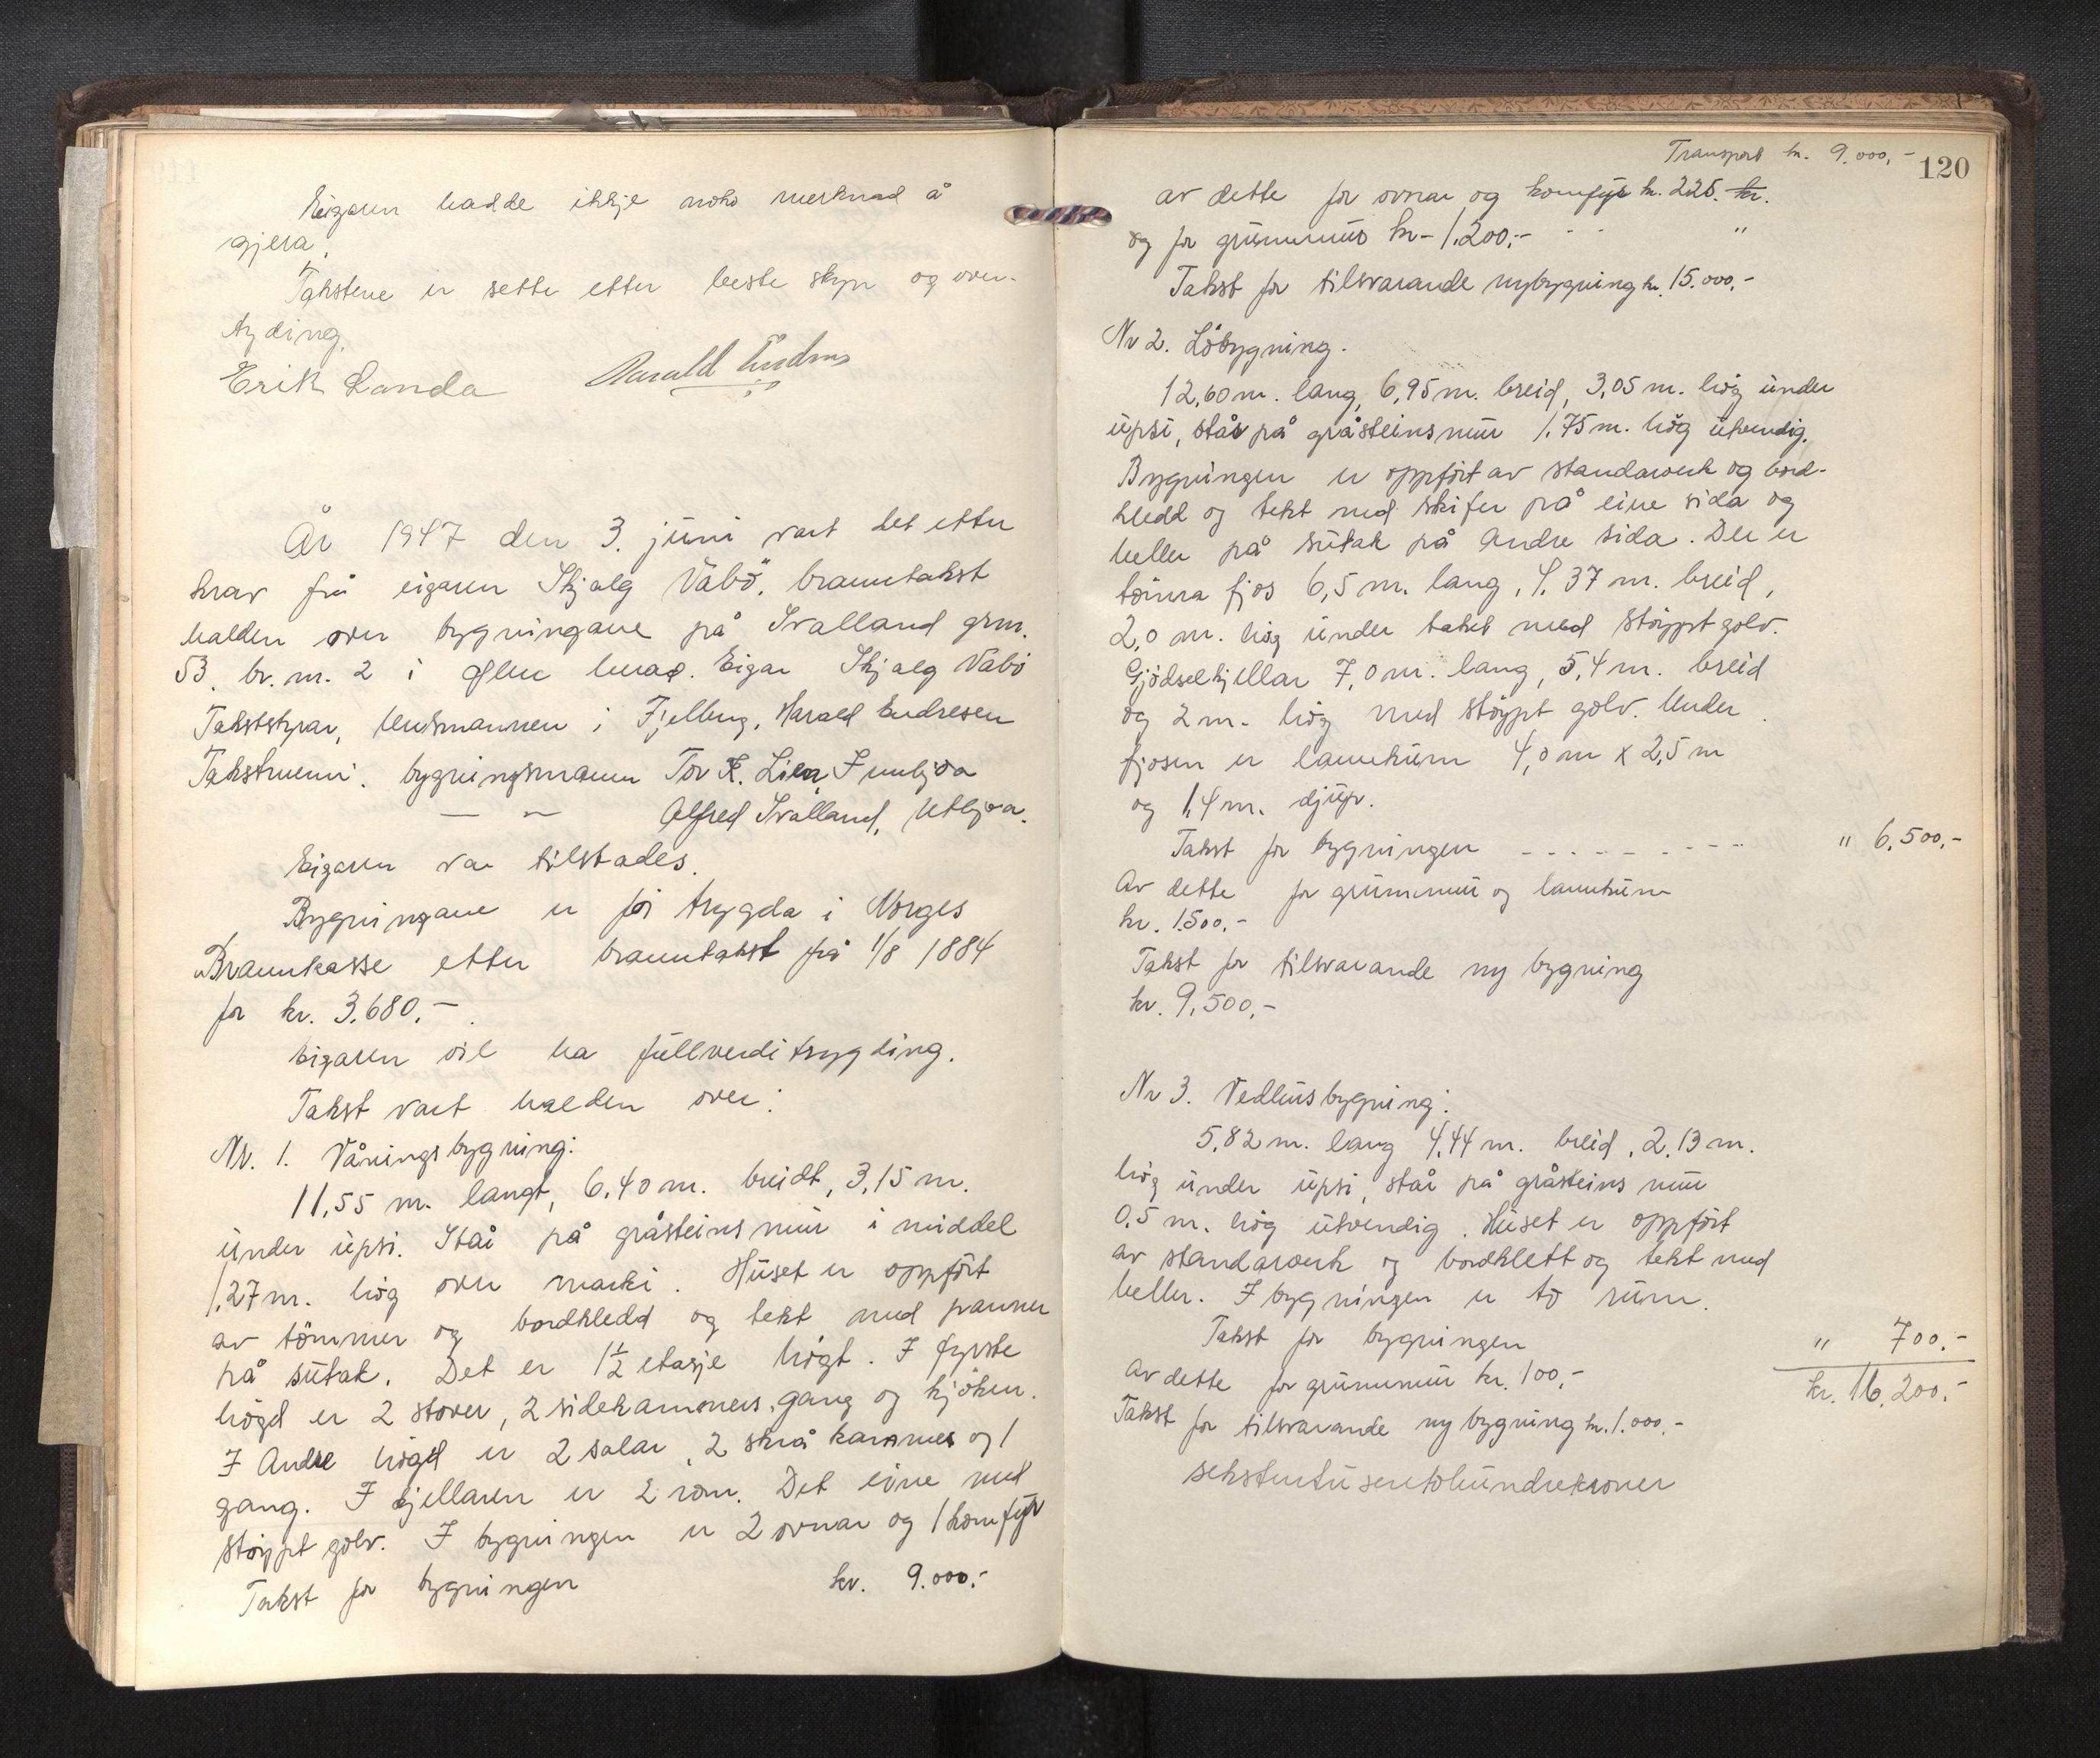 Eigaren hadde ikkje noko merknad å
gjera.
Takstene er sette etter beste skyn og over-
tyding.
Erik Landa Harald Endresen
År 1947 den 3. juni vart det etter
krav frå eigaren Skjalg Våbö, branntakst
halden over bygningane på Svalland grnr.
53. br.nr. 2 i Ølen herad. Eigar Skjalg Våbö
Takststyrar, lensmannen i Fjelberg, Harald Endresen
Takstmenn: bygningsmann Tor K. Lien, Innbjoa
— " — Alfred Svalland, Utbjoa.
Eigaren var tilstades.
Bygningane er för trygda i Norges
Brannkasse etter branntakst frå 1/8 1884
for kr. 3.680.-
Eigaren vil ha fullverditrygding.
Takst vart halden over:
Nr. 1. Våningsbygning:
11,55 m. langt, 6.40 m. breidt, 3,15 m.
under upsi. Står på gråsteinsmur i middel
1,27 m. hög over marki. Huset er oppfört
av tömmer og bordkledd og tekt med panner
på sutak. Det er 1 1/2 etasje högt. I fyrste
högd er 2 stover, 2 sidekammers, gang og kjöken.
I Andre högd er 2 salar, 2 skrå kammer og 1
gang. I kjellaren er 2 rom. Det eine med
stöypt golv. I bygningen er 2 ovnar og 1 komfyr
Takst for bygningen kr. 9.000.-
120
Transport kr. 9.000,-
av dette for ovnar og komfyr kr. 225.- kr.
og for grunnmur kr- 1.200,- - - "
Takst for tilsvarande nybygning kr. 15.000,-
Nr 2. Löbygning.
12,60 m. lang, 6,95 m. breid, 3,05 m. hög under
upsi, står på gråsteinsmur 1.75 m. hög utvendig.
Bygningen er oppfört av standarverk og bord-
kledd og tekt med skifer på eine sida og
heller på sutak på Andre sida. Der er
tömra fjos 6,5 m. lang, 4.37 m. breid,
2,0 m. hög under taket med stöypt golv.
Gjödselkjellar 7,0 m. lang, 5,4 m. breid
og 2 m. hög med stöypt golv. Under
fjosen er landkum 4,0 m x 2,5 m
og 1,4 m. djup.
Takst for bygningen - - - - - - - - - " 6.500,-
Av dette for grunnmur og landkum
kr. 1.500,-
Takst for tilsvarande ny bygning
kr. 9.500,-
Nr 3. Vedhusbygning:
5,82 m. lang 4,44 m. breid, 2,13 m.
hög under upsi, står på gråsteins mur
0,5 m. hög utvendig. Huset er oppfört
av standarverk og bordklett og tekt med
heller. I bygningen er to rum.
Takst for bygningen " 700.-
Av dette for grunnmur kr. 100,- kr. 16.200,-
Takst for tilsvarande ny bygning kr. 1.000.-
sekstentusentohundrekroner